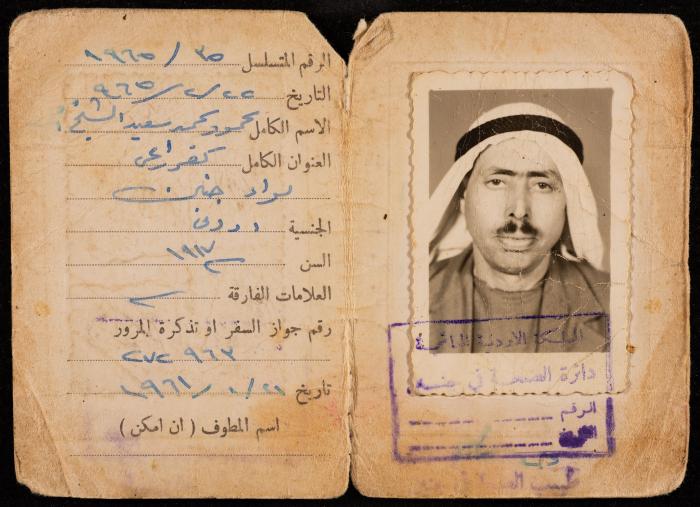 الرقم المتسلسل ٣٥ / ١٩٦٥
التاريخ ٢٢ / ٢ / ٩٦٥
الاسم الكامل محمود محمد سعيد الشيخ
العنوان الكامل كفرراعي
لواء جنين
الجنسية اردني
السن ١٩١٧
العلامات الفارقة
رقم جواز السفر او تذكرة المرور
٢٧٢٩٦٣
تاريخ ٢١ / ١٠ / ١٩٦١
اسم المطوف ( ان امكن )
المملكة الاردنية الهاشمية
دائرة الصحة في جنين
الرقم
التاريخ
طبيب